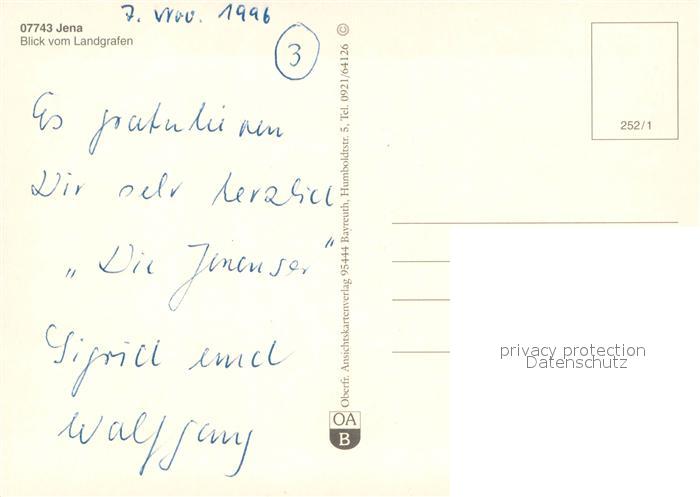 07743 Jena
Blick vom Landgrafen
7. Nov. 1996
3
Es gratulieren
Dir sehr herzlich
„Die Jenenser"
Sigrid und
Wolfgang
Oberfr. Ansichtskartenverlag 95444 Bayreuth, Humboldtstr. 5, Tel. 0921/64126 ©
OA
B
252/1
privacy protection
Datenschutz